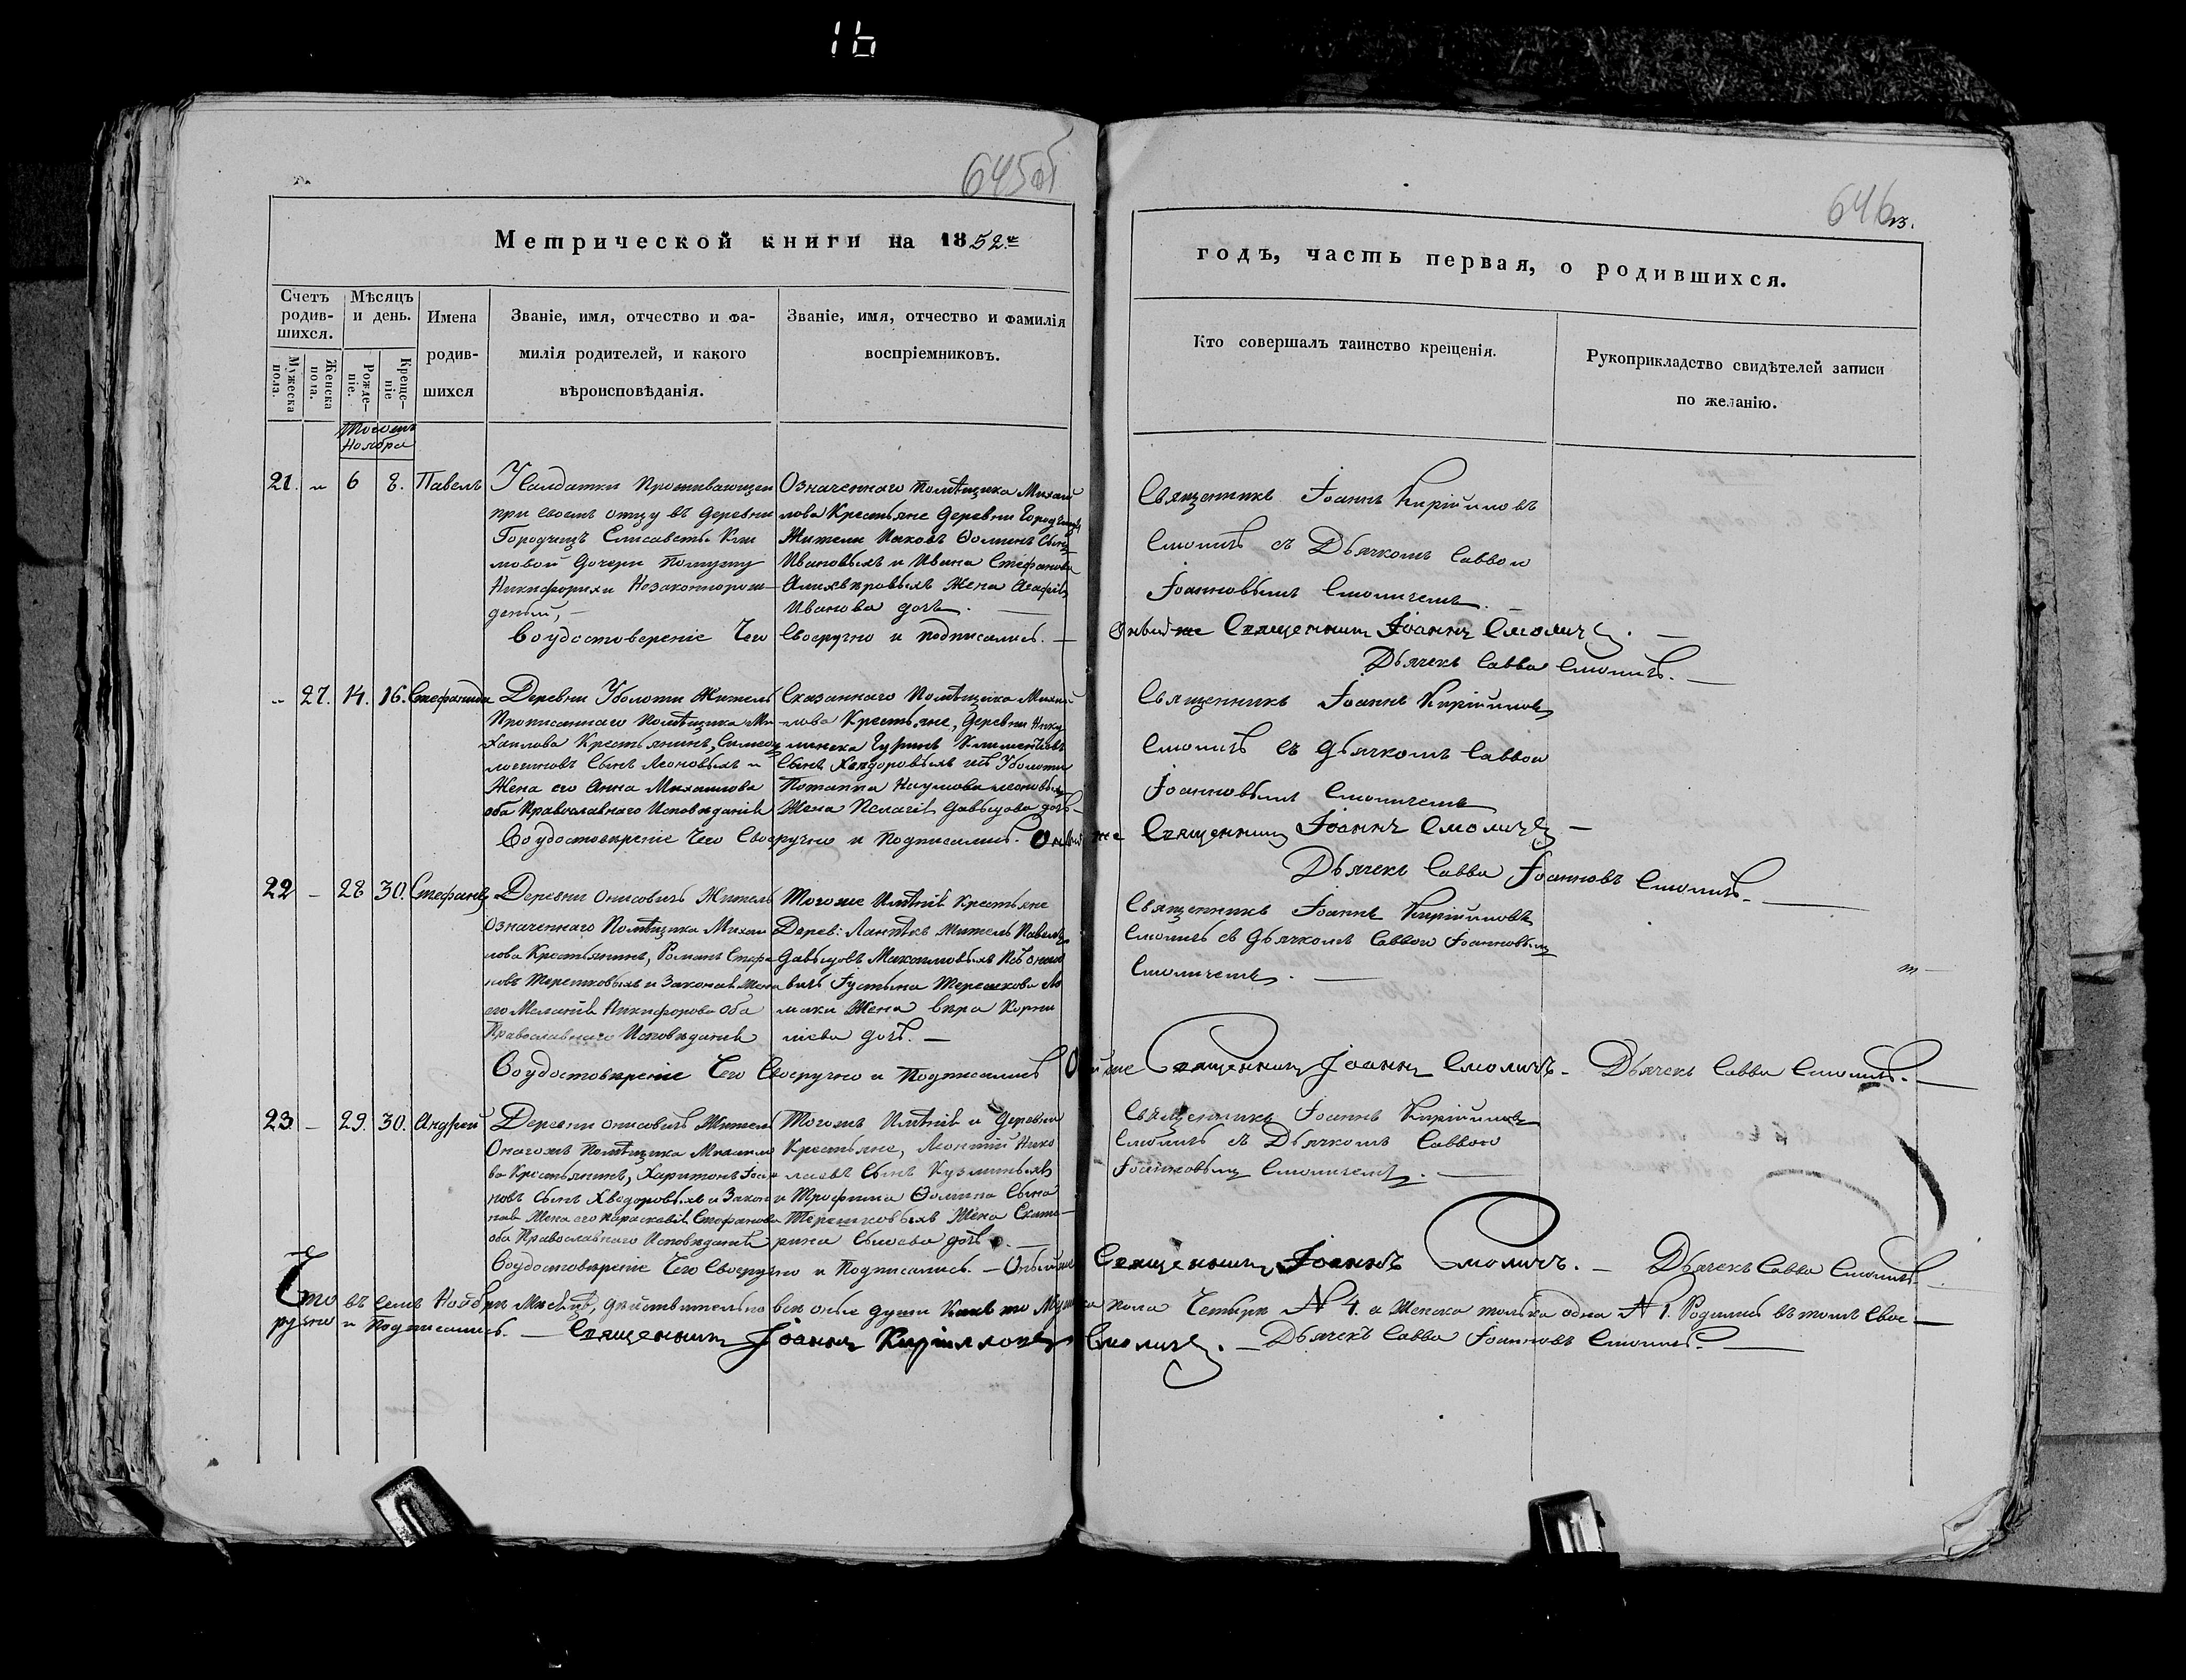 16
645об
646
13.
Метрической книги на 1852.й
годъ, часть первая, о родившихся.
Счетъ родив-шихся.
Мѣсяцъ и день.
Имена родив-шихся
Званіе, имя, отчество и фа-
милія родителей, и какого
вѣроисповѣданія.
Званіе, имя, отчество и фамилія
воспріемниковъ.
Кто совершалъ таинство крещенія.
Рукоприкладство свидѣтелей записи
по желанію.
Мужеска пола.
Женска пола.
Рожде-ніе.
Креще-ніе
Ноября
21. " 6 8. Павелъ
Усолдатки Проживающеи
при своемъ отцу въ деревни
Городчицъ Елисаветы Кли
мовой дочери
Никифорихи Незаконнорож-
деный, —
Означеннаго Помѣщика Михай
лова Крестьяне деревни
Жители Ѳоминъ Сынъ
Ивановыхъ и Ивана Стефанова
Жена Агафія
Иванова дочь. —
Священникъ Іоаннъ Кирійиловъ
Смоличъ съ Дьячкомъ Саввою
Іоанновымъ Смоличемъ. —
Воудостовереніе Чего Своеручно и подписались. — Оныйже Священникъ Іоаннъ Смоличъ. —
Дьячекъ Савва Смоличъ. —
" 27. 14. 16. Стефанида
Деревни Уболоти Житель
Прописаннаго Помѣщика Ми-
хаилова Крестьянинъ,
Сынъ Леоновыхъ и
Жена его Анна Михаилова
оба Православнаго Исповѣданія
Сказаннаго Помѣщика Михай-
лова Крестьяне, Деревни
Сынъ Уболоти
Потаппа Наумова
Жена Пелагія Давыдова дочь
Священникъ Іоаннъ Кирійиловъ
Смоличъ съ дьячкомъ Саввою
Іоанновымъ Смоличемъ
Воудостовѣреніе Чего Своеручно и Подписались. Оныйже Священникъ Іоаннъ Смоличъ —
Дьячекъ Савва Іоанновъ Смоличъ. —
22 — 28 30. Стефанъ
Деревни Онисовичъ Житель
Означеннаго Помѣщика Михаи
лова Крестьянинъ, Романъ Стефа
новъ Терешковыхъ и Законная Жена
его Меланія Никифорова Оба
Православнаго Исповѣданія
Тогоже Имѣнія Крестьяне
Дерев: Житель Павелъ
Давыдовъ
Терешкова
Жена Вѣра Корни
ліева дочь. —
Священникъ Іоаннъ Кирійиловъ
Смоличъ съ дьячкомъ Саввою Іоанновымъ
Смоличемъ. —
Воудостовѣреніе Чего Своеручно и Подписались Оныйже Священникъ Іоаннъ Смоличъ. — Дьячекъ Савва Смоличъ. —
23 — 29. 30. Андрей
Деревни Онисовичъ Жители
Помѣщика Михаило
ва Крестьянинъ, Харитонъ Іоан
новъ Сынъ Хведоровыхъ и Закон
ная Жена его Параскевія Стефанова
оба Православнаго Исповѣданія
Тогожъ Имѣнія и деревни
Крестьяне, Леонтій Нико
лаевъ Сынъ
и Трофима Ѳомина Сына
Терешковыхъ Жена Екате-
рина дочь. —
Священникъ Іоаннъ Кирійиловъ
Смоличъ съ Дьячкомъ Саввою
Іоанновымъ Смоличемъ. —
Воудостовѣреніе Чего Своеручно и Подписались. — Оныйже Священникъ Іоаннъ Смоличъ. — Дьячекъ Савва Смоличъ. —
Что въ семъ Ноябрѣ Мѣсяцѣ, дѣйствительно души Какъ то Мужеска пола Четыри № 4. а Женска только одна № 1. Родились въ томъ Свое —
ручно и Подписались. — Священникъ Іоаннъ Кирилловъ Смоличъ. — Дьячекъ Савва Іоанновъ Смоличъ. —